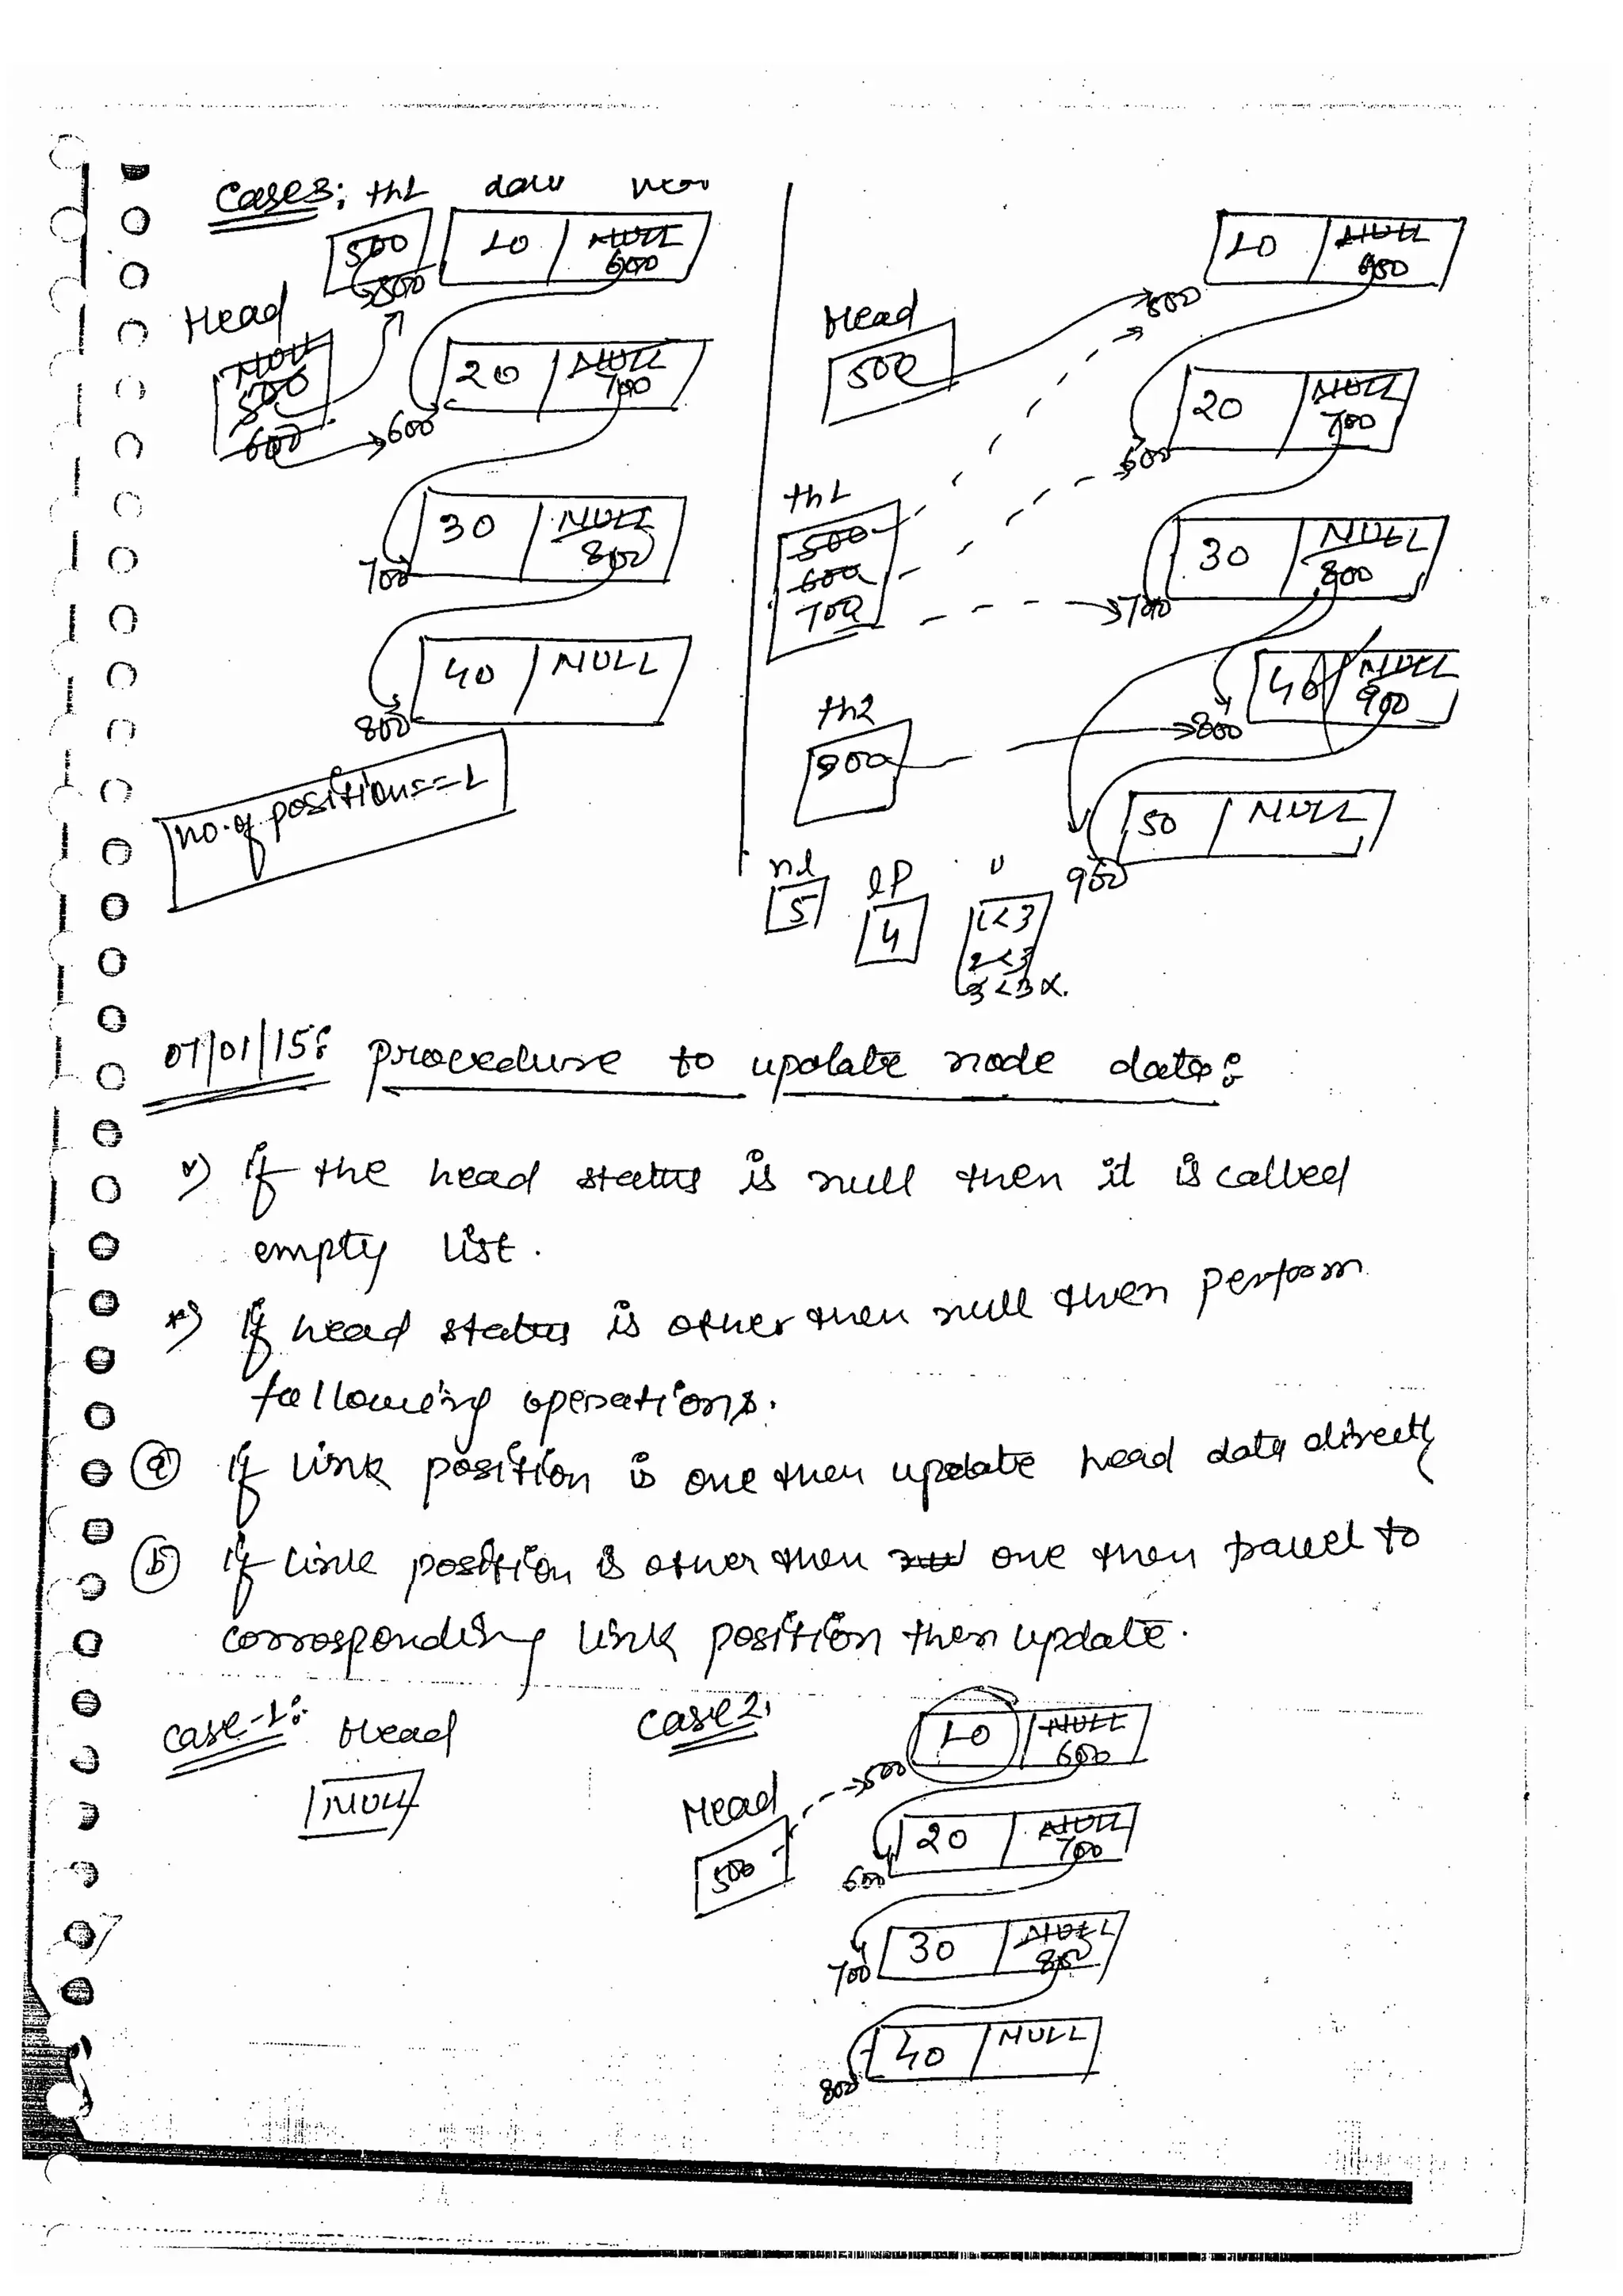 Case3: th1
500
500
10 NULL
600
Head
NULL
500
600
600
20 NULL
700
700
30 NULL
800
800
40 NULL
no.of positions==1
Head
500
500
10 NULL
600
20 NULL
700
th1
500
600
700
600
700
30 NULL
800
th2
800
800
40 NULL
900
50 NULL
900
5
lp
4
1<3
2<3
3<3 x.
07/01/15: procedure to update node data:
*) if the head status is null then it is called
empty list.
*) if head status is other then null then perform
following operations.
(a) if link position is one then update head data directly
(b) if link position is other then null one then travel to
corrosponding link position then update.
case-1: Head
NULL
case2:
Head
500
500
10 NULL
600
600
20 NULL
700
700
30 NULL
800
800
40 NULL